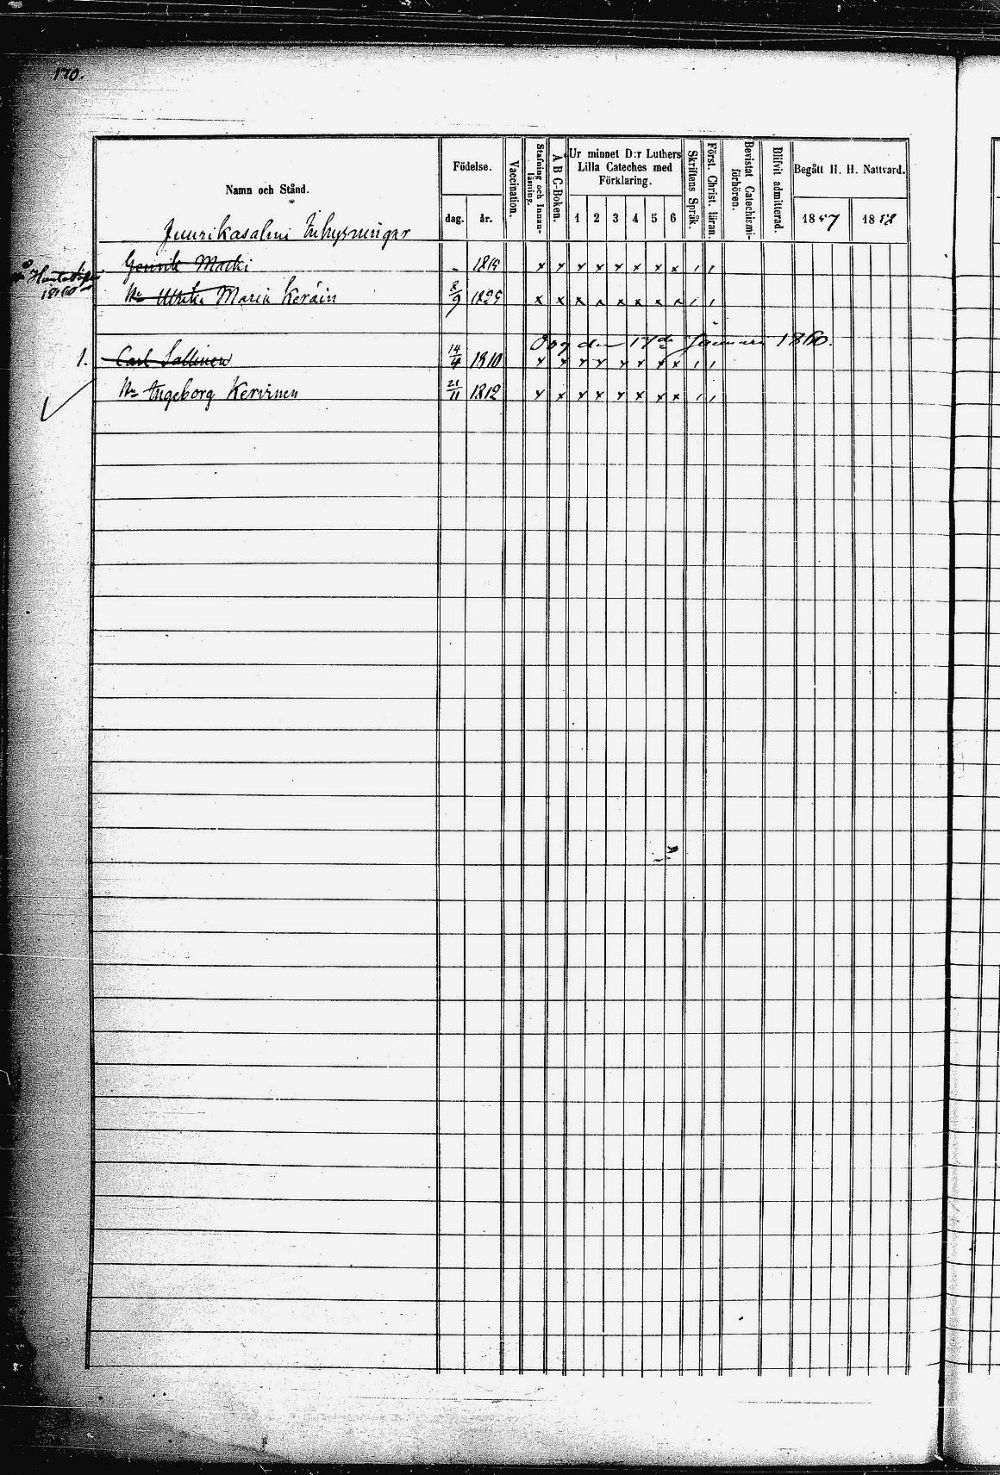 170.
Namn och Stånd.
Födelse.
dag.
år.
Vaccination.
Stafning och Innan-
läsning.
A B C-Boken.
Ur minnet D:r Luthers
Lilla Cateches med
Förklaring.
1 2 3 4 5 6
Skriftens Språk.
Först. Christ. läran.
Bevistat Catechismi-
förhören.
Blifvit admitterad.
Begått H. H. Nattvard.
1857
1858
Juurikasalmi Inhysningar
Henrik Matki - 1819 x x x x x x x x , ,
1860
Hu Ulrika Maria Keräin 8/9 1825 x x x x x x x x , ,
Dog den 17de Januari 1860.
1. Carl Sallinen 14/4 1810 x x x x x x x x , ,
Hu Ingeborg Kervinen 21/11 1812 x x x x x x x x , ,